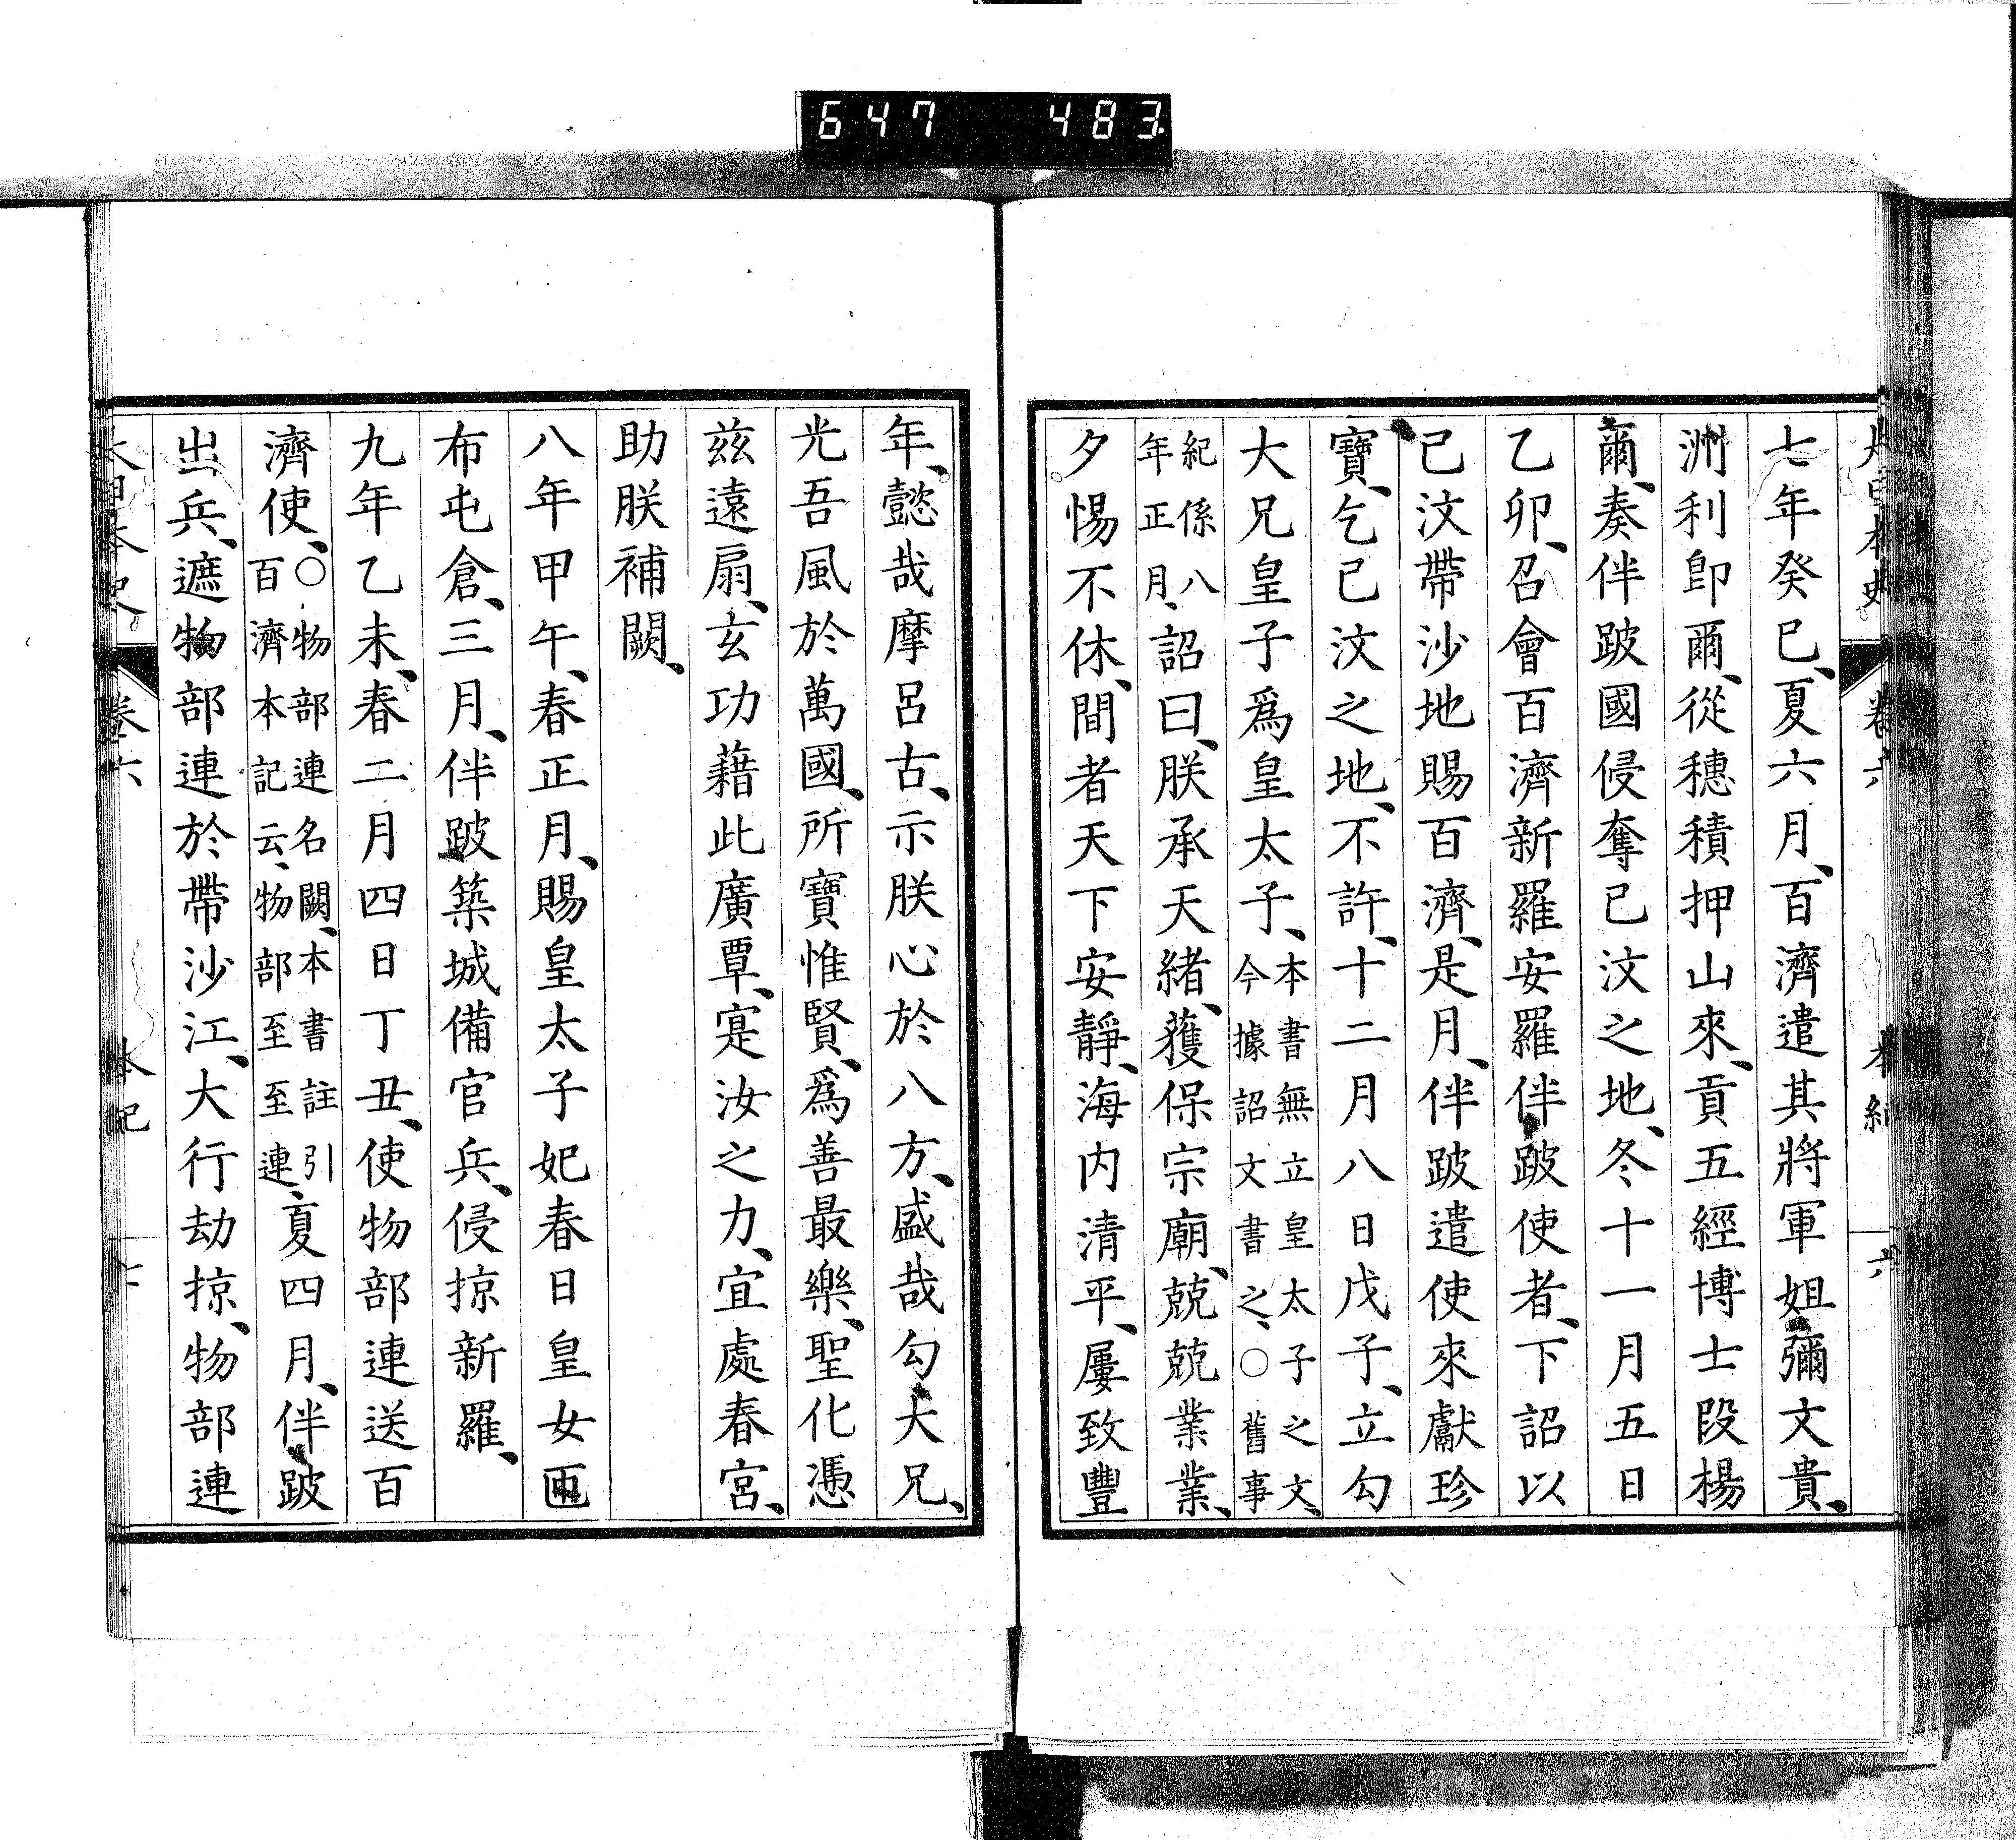 647 483
大日本史 卷六 本紀 六
七年癸巳、夏六月、百濟遣其將軍姐彌文貴、
洲利卽爾、從穗積押山來、貢五經博士段楊
爾、奏伴跛國侵奪己汶之地、冬十一月五日
乙卯、召會百濟新羅安羅伴跛使者、下詔以
己汶帶沙地賜百濟、是月、伴跛遣使來獻珍
寶、乞己汶之地、不許、十二月八日戊子、立勾
大兄皇子爲皇太子、本書無立皇太子之文、今據詔文書之、○舊事
紀係八年正月、詔曰、朕承天緒、獲保宗廟、兢兢業業、
夕惕不休、間者天下安靜、海内清平、屢致豐
年、懿哉摩呂古、示朕心於八方、盛哉勾大兄、
光吾風於萬國、所寶惟賢、爲善最樂、聖化憑
兹遠扇、玄功藉此廣覃、寔汝之力、宜處春宮、
助朕補闕、
八年甲午、春正月、賜皇太子妃春日皇女匝
布屯倉、三月、伴跛築城備官兵、侵掠新羅、
九年乙未、春二月四日丁丑、使物部連送百
濟使、○物部連名闕、本書註引百濟本記云、物部至至連、夏四月、伴跛
出兵、遮物部連於帶沙江、大行劫掠、物部連
大日本史 卷六 本紀 七